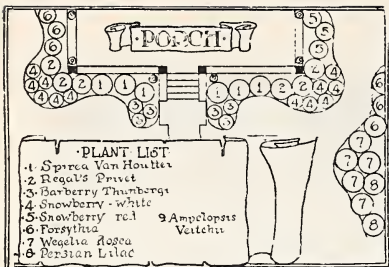 PORCH
PLANT LIST
1 Spirea Van Houttei
2 Regal's Privet
3 Barberry Thunbergi
4 Snowberry - white
5 Snowberry red
6 Forsythia
7 Wegelia Rosea
8 Persian Lilac
9 Ampelopsis
Veitchii